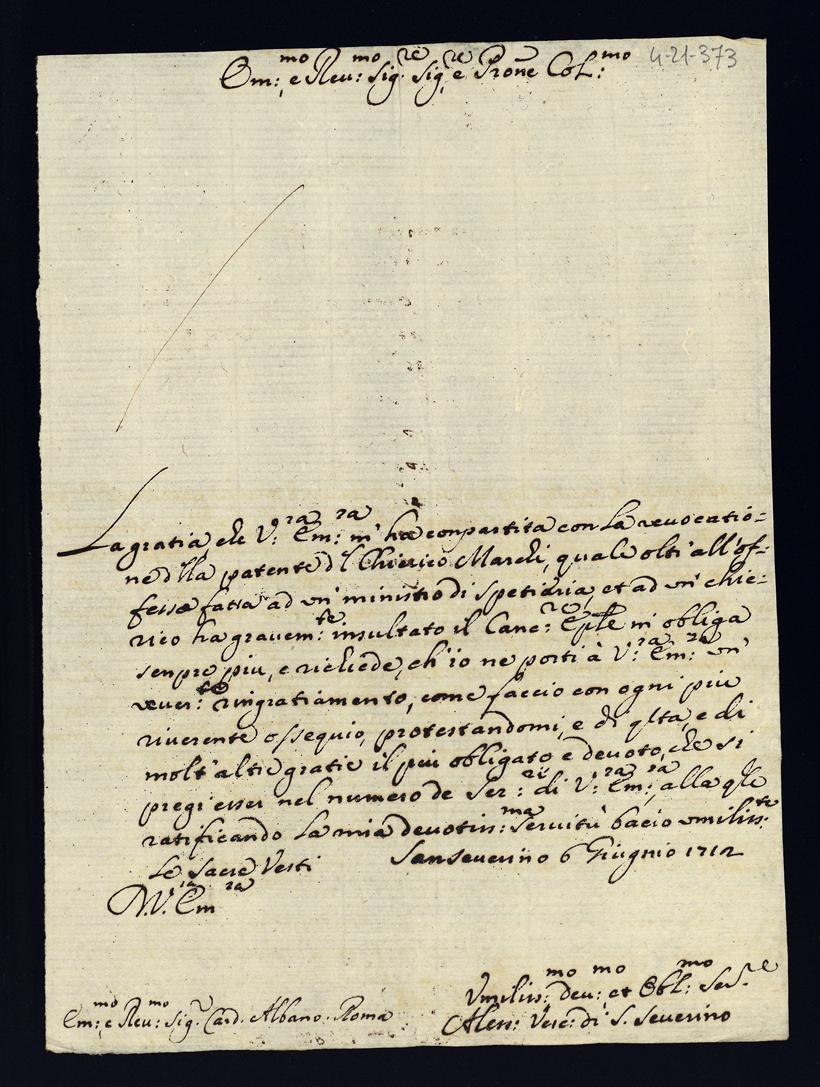 Em:mo e Reu:mo Sig:re Sig:re e Prone Col:mo 4-21-373
La gratia, che V:ra Em:za m' ha conpartita con la reuocatio=
ne d'lla patente d'l Chierico Marchi, quale oltr' all' of=
fesse fatta ad vn' ministro di spetiaria, et ad vn' chie=
rico ha grauem:te insultato il Canc:re Eple m' obliga
senpre piu, e richiede, ch' io ne porti à V:ra Em:za vn'
reuer:te ringratiamento, come faccio con ogni piu
riuerente ossequio, protestandomi, e di qsta, e di
molt' altre gratie il piu obligato e deuoto, che si
pregi esser nel numero de Ser:ri di V:ra Em:za, alla qle
ratificando la mia deuotiss:ma seruitù bacio vmiliss:te
le Sacre Vesti Sanseuerino 6 Giugnio 1712
D. V:ra Em:za
Vmiliss:mo deu:mo et Obl:mo Ser:re
Em:mo e Reu:mo Sig:r Card. Albano. Roma
Aless: Vesc: di S. Seuerino